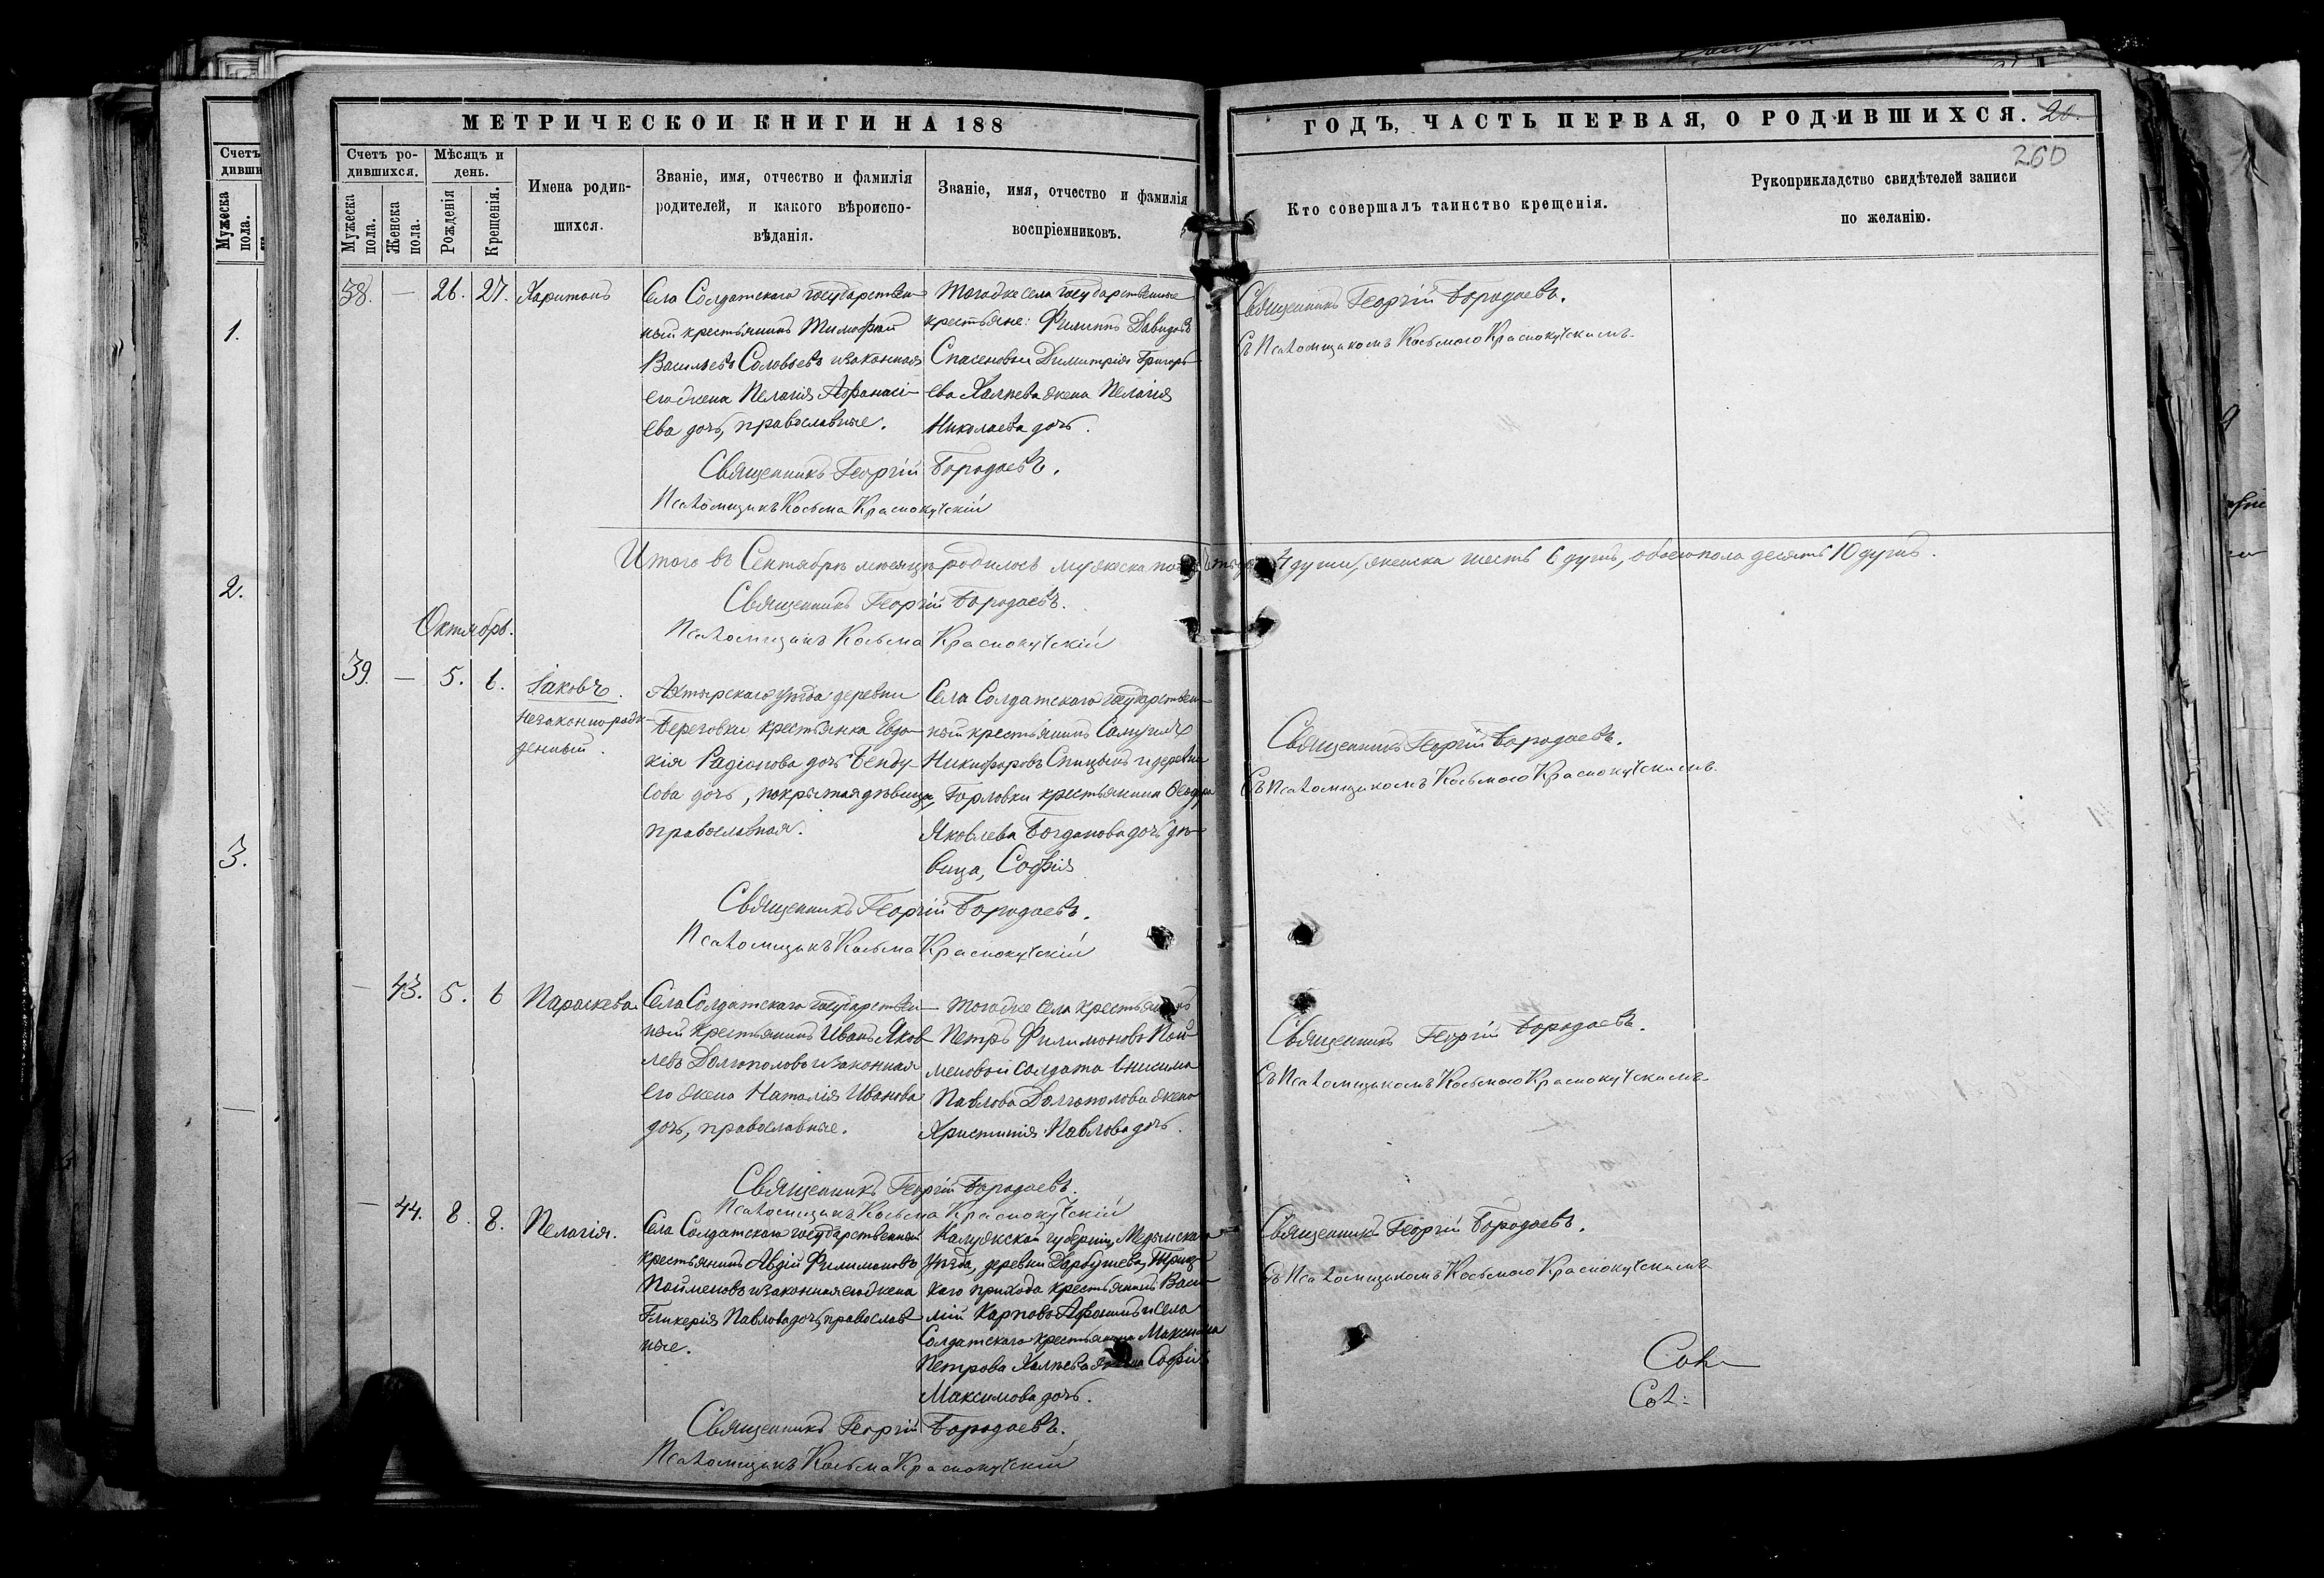 МЕТРИЧЕСКОЙ КНИГИ НА 188
ГОДЪ, ЧАСТЬ ПЕРВАЯ, О РОДИВШИХСЯ. 20.
260
Счетъ
дивши
Мужеска
пола.
1.
2.
3.
Счетъ ро-
дившихся.
Мужеска
пола.
Женска
пола.
Мѣсяцъ и
день.
Рожденія
Крещенія.
Имена родив-
шихся.
Званіе, имя, отчество и фамилія
родителей, и какого вѣроиспо-
вѣданія.
Званіе, имя, отчество и фамилія
воспріемниковъ.
Кто совершалъ таинство крещенія.
Рукоприкладство свидѣтелей записи
по желанію.
38. — 26. 27. Харитонъ
Села Солдатскаго государствен-
ный крестьянинъ Тимофей
Васильевъ Соловьевъ и законная
его жена Пелагія Афанасі-
ева дочь, православные.
Тогоже села государственные
крестьяне: Филиппъ Давидовъ
Димитрія Григорь-
ева Халтева жена Пелагія
Николаева дочь.
Священникъ Георгій Бородаевъ.
Съ Псаломщикомъ Косьмою Краснокутскимъ.
Священникъ Георгій Бородаевъ.
Псаломщикъ Косьма Краснокутскій
Итого въ Сентябрѣ мѣсяцѣ родилось мужеска 4 души, женска шесть 6 душъ, обоего пола десять 10 душъ.
Священникъ Георгій Бородаевъ.
Псаломщикъ Косьма Краснокутскій
Октябрь.
39. — 5. 6. Іаковъ.
незаконнорож-
денный.
Ахтырскаго уѣзда деревни
Береговки крестьянка Евдо-
кія Радіонова дочь Бенду-
сова дочь, покрытая дѣвица,
православная.
Села Солдатскаго государствен-
ный крестьянинъ Самуилъ
Никифоровъ Спицынъ и деревни
Горловки крестьянина Ѳеодора
Яковлева Богданова дочь дѣ-
вица, Софія
Священникъ Георгій Бородаевъ.
Съ Псаломщикомъ Косьмою Краснокутскимъ.
Священникъ Георгій Бородаевъ.
Псаломщикъ Косьма Краснокутскій
— 43. 5. 6 Параскева.
Села Солдатскаго государствен-
ный крестьянинъ Иванъ Яков-
левъ Долгополовъ и законная
его жена Наталія Иванова
дочь, православные.
Тогоже села крестьянинъ
Петръ Филимоновъ Пой-
меновъ и солдата Анисима
Павлова Долгополова жена
Христинія Павлова дочь.
Священникъ Георгій Бородаевъ.
Съ Псаломщикомъ Косьмою Краснокутскимъ
Священникъ Георгій Бородаевъ.
Псаломщикъ Косьма Краснокутскій
— 44. 8. 8. Пелагія.
Села Солдатскаго государственный
крестьянинъ Авдій Филимоновъ
Пойменовъ и законная его жена
Гликерія Павлова дочь, православ-
ные.
Калужской губерніи, Медынскаго
уѣзда, деревни Дарбушева, Троиц-
каго прихода крестьянинъ Васи-
лій Карповъ Афонинъ и села
Солдатскаго крестьянина Максима
Петрова Халтева жена Софія
Максимова дочь.
Священникъ Георгій Бородаевъ.
Съ Псаломщикомъ Косьмою Краснокутскимъ
Священникъ Георгій Бородаевъ.
Псаломщикъ Косьма Краснокутскій